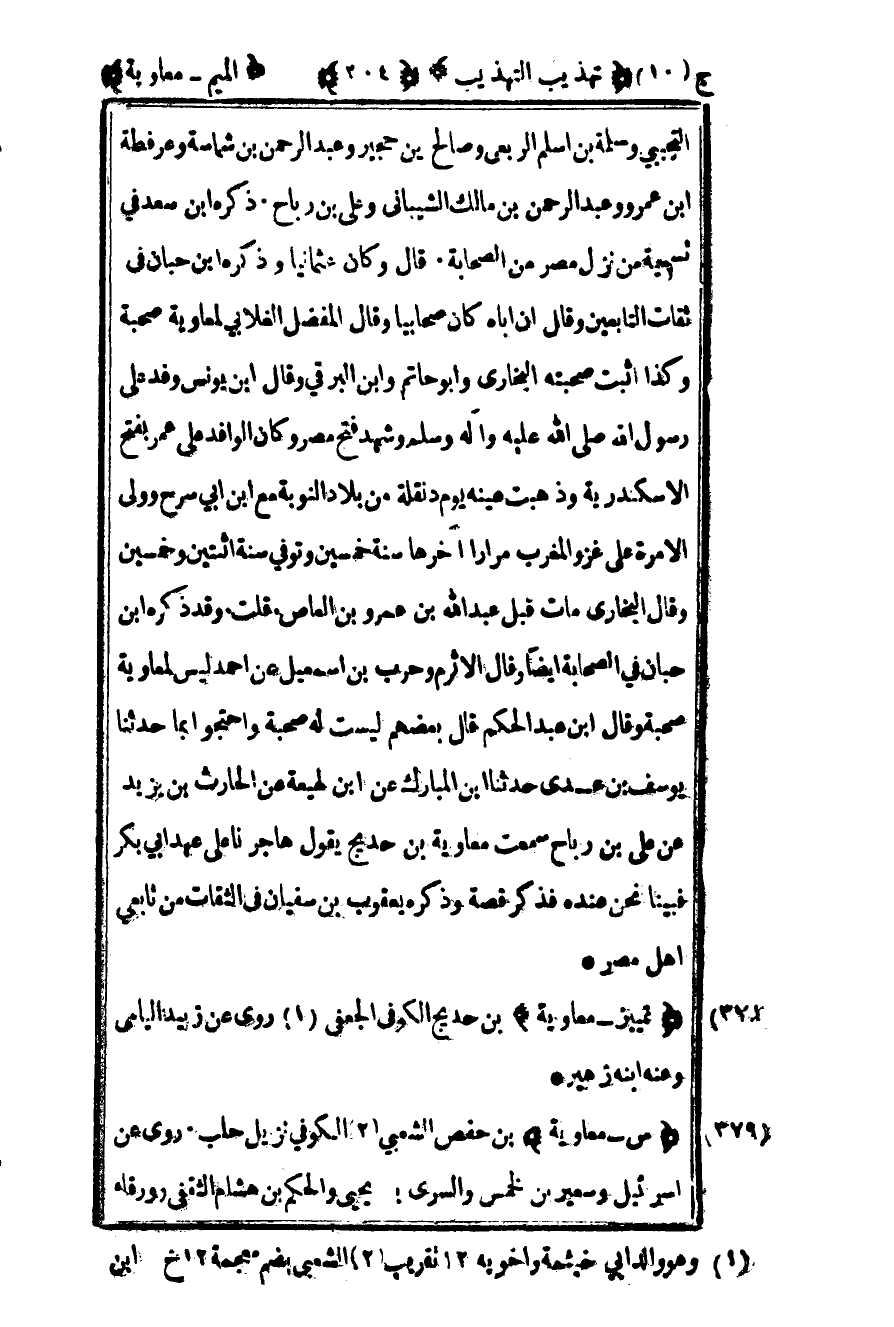 ج (١٠) ﴿ تهذيب التهذيب ﴾ ﴿ ٢٠٤ ﴾ ﴿ الميم ـ معاوية ﴾
التجيبي وسلمة بن اسلم الربعى وصالح بن حجير وعبد الرحمن بن شماسة وعرفطة
ابن عمرو وعبد الرحمن بن مالك الشيبانى وعلى بن رباح . ذكره ابن سعد في
تسمية من نزل مصر من الصحابة . قال وكان عثمانيا و ذكره ابن حبان فى
ثقات التابعين وقال ان اباه كان صحابيا وقال المفضل الغلابي لمعاوية صحبة
وكذا اثبت صحبته البخارى وابو حاتم وابن البرقي وقال ابن يونس وفد على
رسول الله صلى الله عليه وآله وسلم وشهد فتح مصر وكان الوافد على عمر بفتح
الاسكندرية وذهبت عينه يوم دنقلة من بلاد النوبة مع ابن ابي سرح وولى
الامرة على غزو المغرب مرارا آخرها سنة خمسين وتوفي سنة اثنتين وخمسين
وقال البخارى مات قبل عبد الله بن عمرو بن العاص . قلت . وقد ذكره ابن
حبان في الصحابة ايضا وقال الاثرم وحرب بن اسمعيل عن احمد ليس لمعاوية
صحبة وقال ابن عبد الحكم قال بعضهم ليست له صحبة واحتجوا بما حدثنا
يوسف بن عدى حدثنا ابن المبارك عن ابن لهيعة عن الحارث بن يزيد
عن على بن رباح سمعت معاوية بن حديج يقول هاجرنا على عهد ابي بكر
فبينا نحن عنده فذكر قصة وذكره يعقوب بن سفيان فى الثقات من تابعي
اهل مصر •
(٣٧٨) ﴿ تمييز ـ معاوية ﴾ بن حديج الكوفى الجعفى (١) روى عن زبيد اليامى
وعنه ابنه زهير •
(٣٧٩) ﴿ س ـ معاوية ﴾ بن حفص الشعبي (٢) الكوفي نزيل حلب . روى عن
اسرئيل وسعير بن خمس والسرى بن يحيى والحكم بن هشام الثقفى وورقاء
(١) وهو والد ابي خيثمة واخويه ١٢ تقريب (٢) الشعبي بضم معجمة ١٢ خ ابن